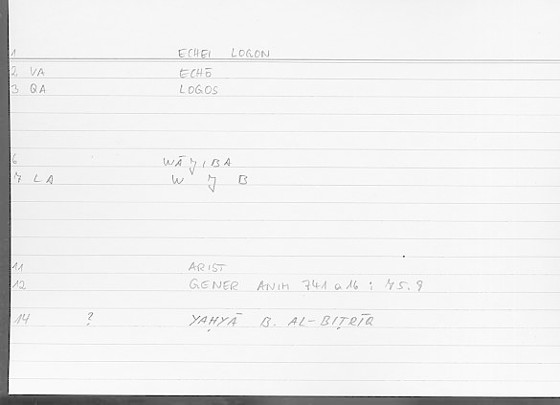 1 ECHEI LOGON
2 VA ECHŌ
3 QA LOGOS
6 WĀJIBA
7 LA W J B
11 ARIST
12 GENER ANIM 741 a 16 ; 75.9
14 ? YAḤYĀ B. AL-BIṬRĪQ